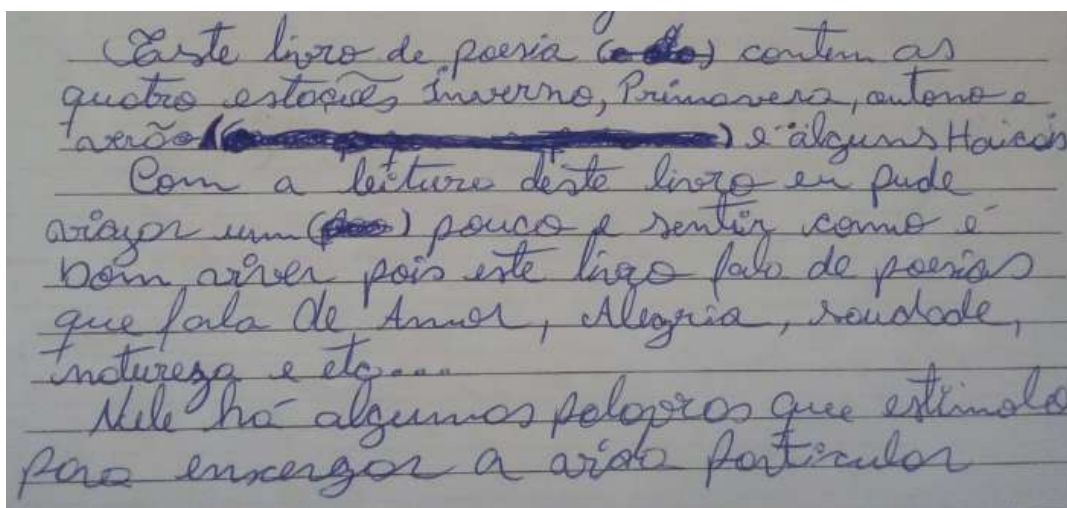 Este livro de poesia contem as
quatro estações Inverno, Primavera, outono e
verão e alguns Haicais
Com a leitura deste livro eu pude
viajar um pouco e sentir como é
bom viver pois este livro fala de poesias
que fala de Amor, Alegria, saudade,
natureza e etc...
Nele há algumas palavras que estimula
para enxergar a vida particular